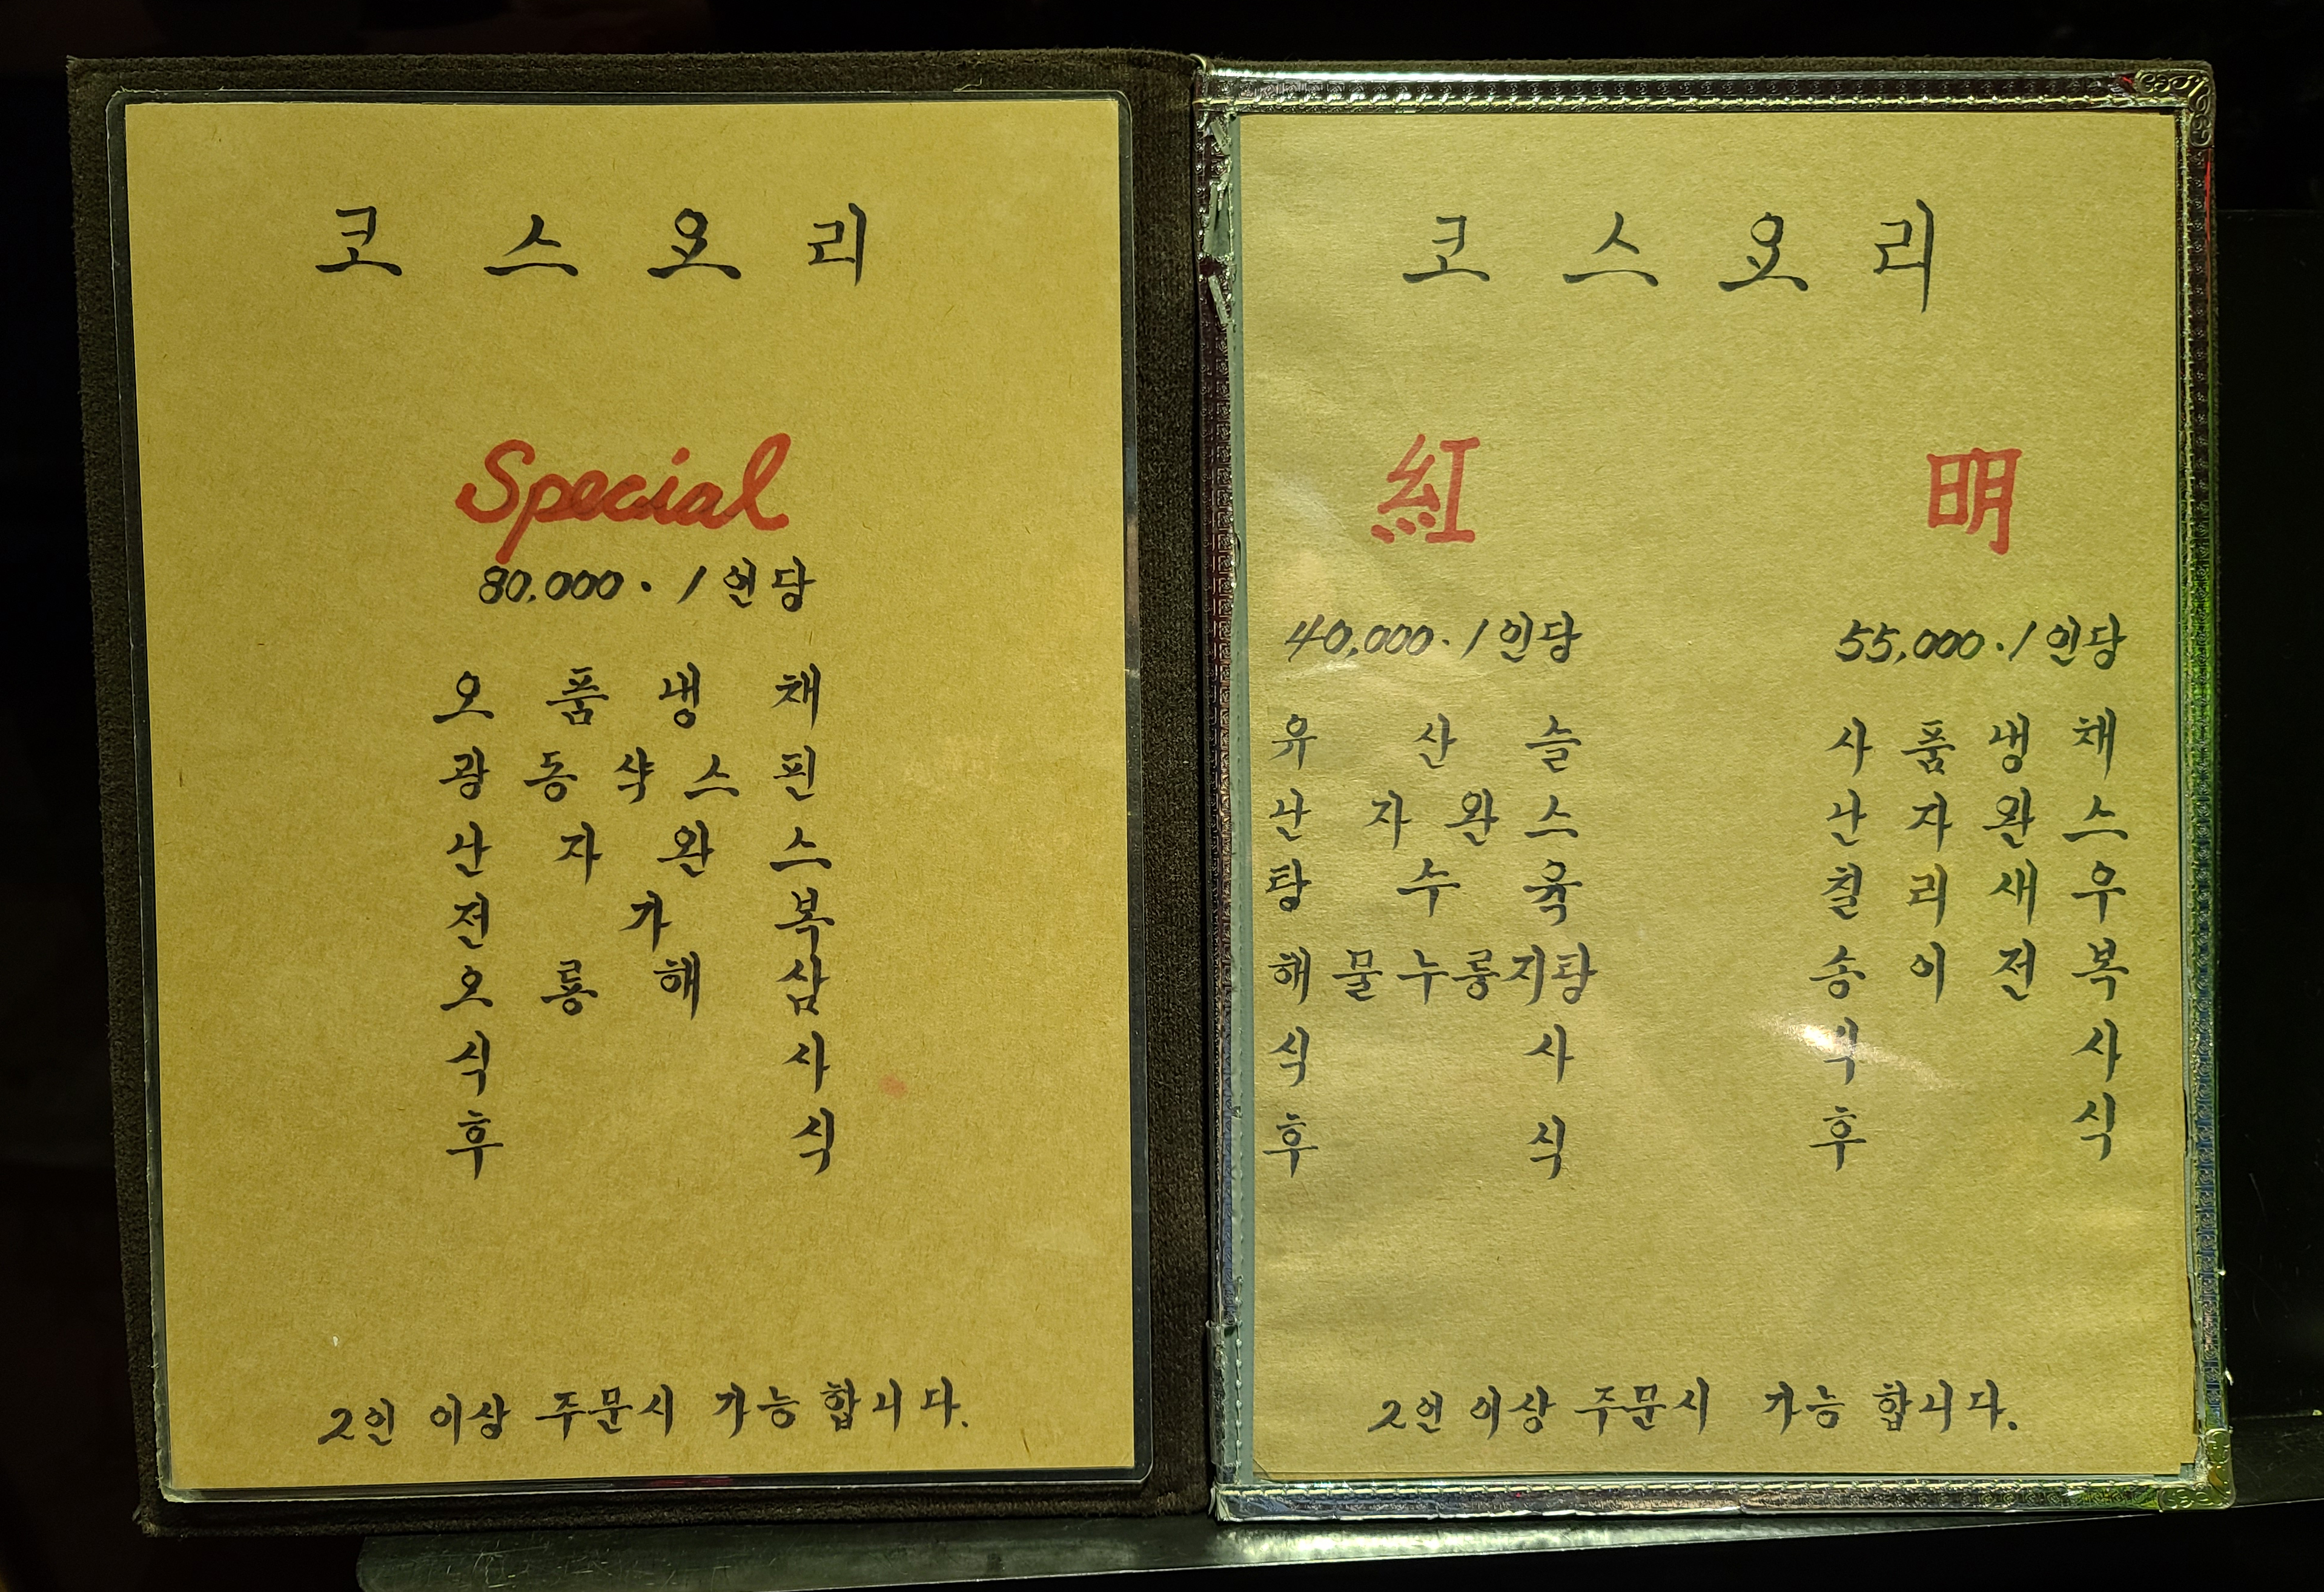 코스요리
Special
80,000. / 인당
오품냉채
광동샥스핀
난자완스
전가복
오룡해삼
식사
후식
2인 이상 주문시 가능합니다.
코스요리
紅
40,000. / 인당
유산슬
난자완스
탕수육
해물누룽지탕
식사
후식
明
55,000. / 인당
사품냉채
난자완스
칠리새우
송이전복
식사
후식
2인 이상 주문시 가능 합니다.